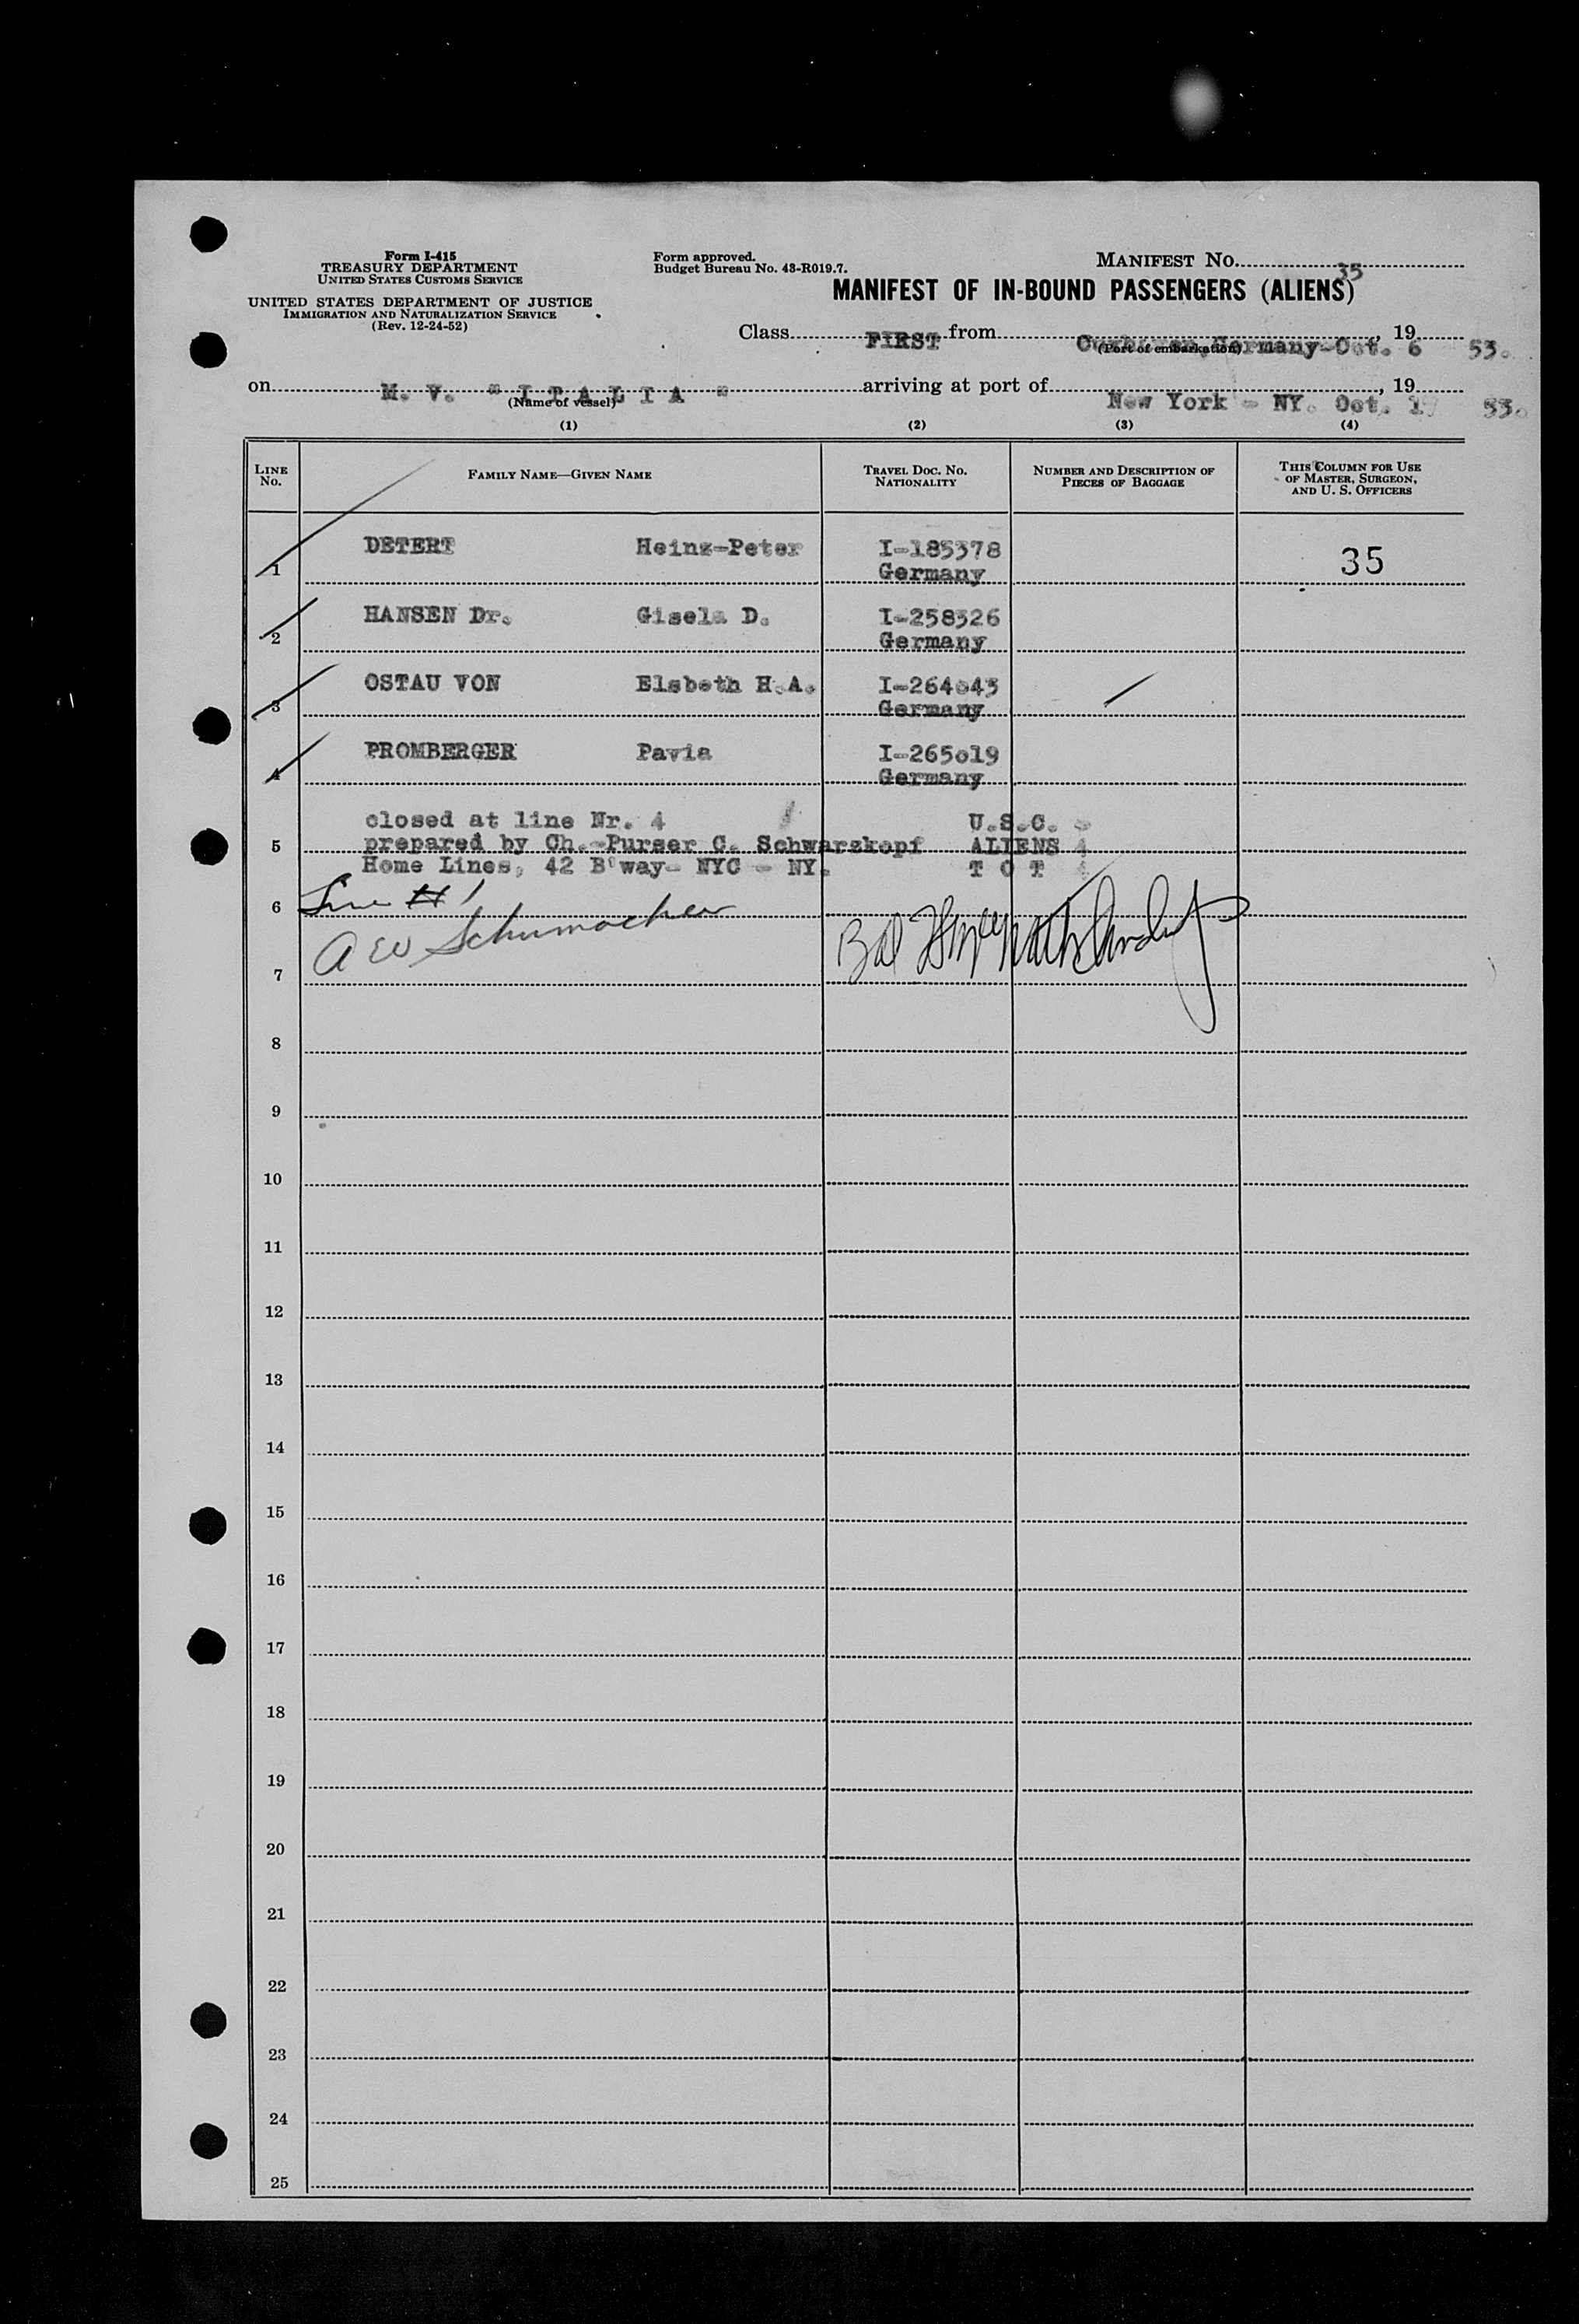 Form I-415
TREASURY DEPARTMENT
UNITED STATES CUSTOMS SERVICE
UNITED STATES DEPARTMENT OF JUSTICE
IMMIGRATION AND NATURALIZATION SERVICE
(Rev. 12-24-52)
Form approved.
Budget Bureau No. 43-R019.7.
MANIFEST NO. 35
MANIFEST OF IN-BOUND PASSENGERS (ALIENS)
Class FIRST from Cuxhaven, Germany-Oct. 6, 19 53.
(Port of embarkation)
on M. V. "I T A L I A" arriving at port of New York - NY. Oct. 19 53.
(Name of vessel)
(1) (2) (3) (4)
LINE NO. FAMILY NAME—GIVEN NAME TRAVEL DOC. NO. NATIONALITY NUMBER AND DESCRIPTION OF PIECES OF BAGGAGE THIS COLUMN FOR USE OF MASTER, SURGEON, AND U. S. OFFICERS
1 DETERT Heinz-Peter I-185378 35
Germany
2 HANSEN Dr. Gisela D. I-258326
Germany
3 OSTAU VON Elsbeth H.A. I-264o43
Germany
4 PROMBERGER Pavia I-265o19
Germany
closed at line Nr. 4 U.S.C. -
5 prepared by Ch.-Purser C. Schwarzkopf ALIENS 4
Home Lines, 42 B'way- NYC - NY. T O T 4
6 Line 1
A W Schumacher
7
8
9
10
11
12
13
14
15
16
17
18
19
20
21
22
23
24
25